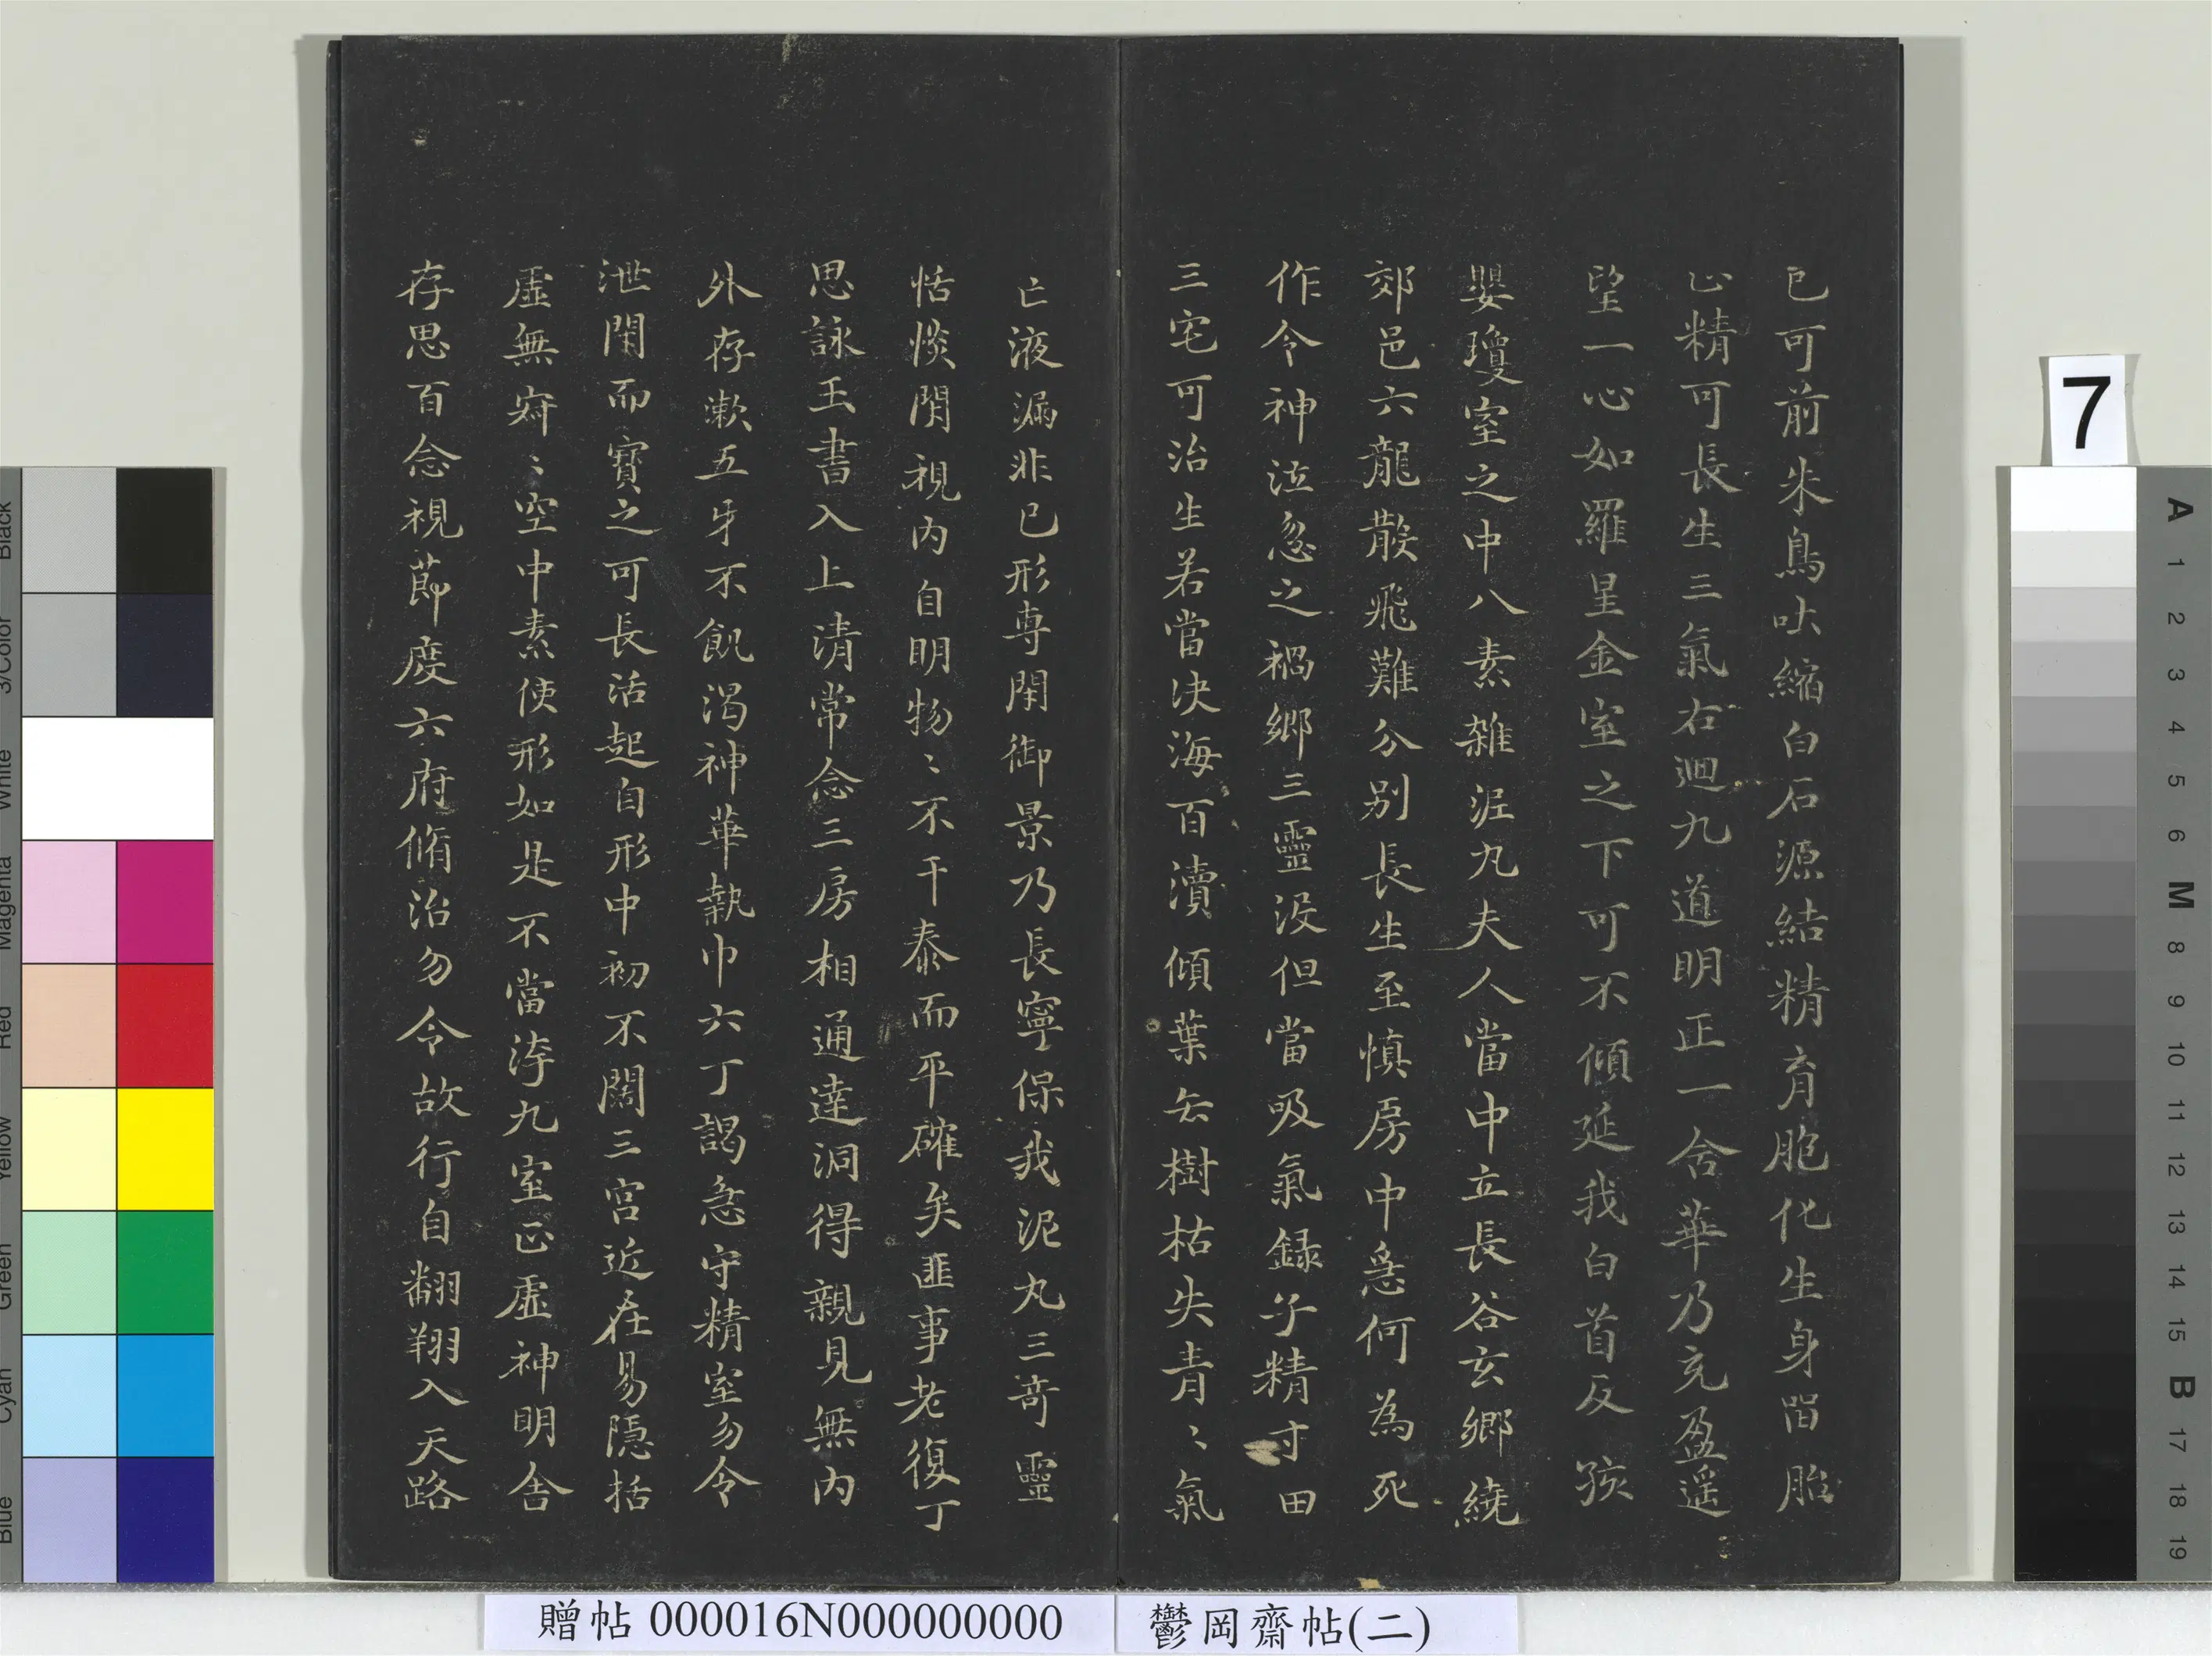 已可前朱鳥吐縮白石源結精育胞化生身留胎
止精可長生三氣右迴九道明正一含華乃充盈遥
望一心如羅星金室之下可不傾延我白首反孩
嬰瓊室之中八素雜泥丸夫人當中立長谷玄鄉繞
郊邑六龍散飛難分別長生至慎房中急何為死
作令神泣忽之禍鄉三靈没但當吸氣録子精寸田
三宅可治生若當决海百瀆傾葉去樹枯失青〻氣
亡液漏非已形専閇御景乃長寧保我泥丸三竒靈
恬惔閇視内自明物〻不干泰而平確矣匪事老復丁
思詠玉書入上清常念三房相通達洞得親見無内
外存漱五牙不飢渴神華執巾六丁謁急守精室勿令
泄閇而寶之可長活起自形中初不闊三宫近在易隱括
虛無寂〻空中素使形如是不當汚九室正虛神明舍
存思百念視節度六府脩治勿令故行自翱翔入天路
贈帖 000016N000000000
鬱岡齋帖(二)
7
Black
3/Color
White
Magenta
Red
Yellow
Green
Cyan
Blue
A
1
2
3
4
5
6
M
8
9
10
11
12
13
14
15
B
17
18
19